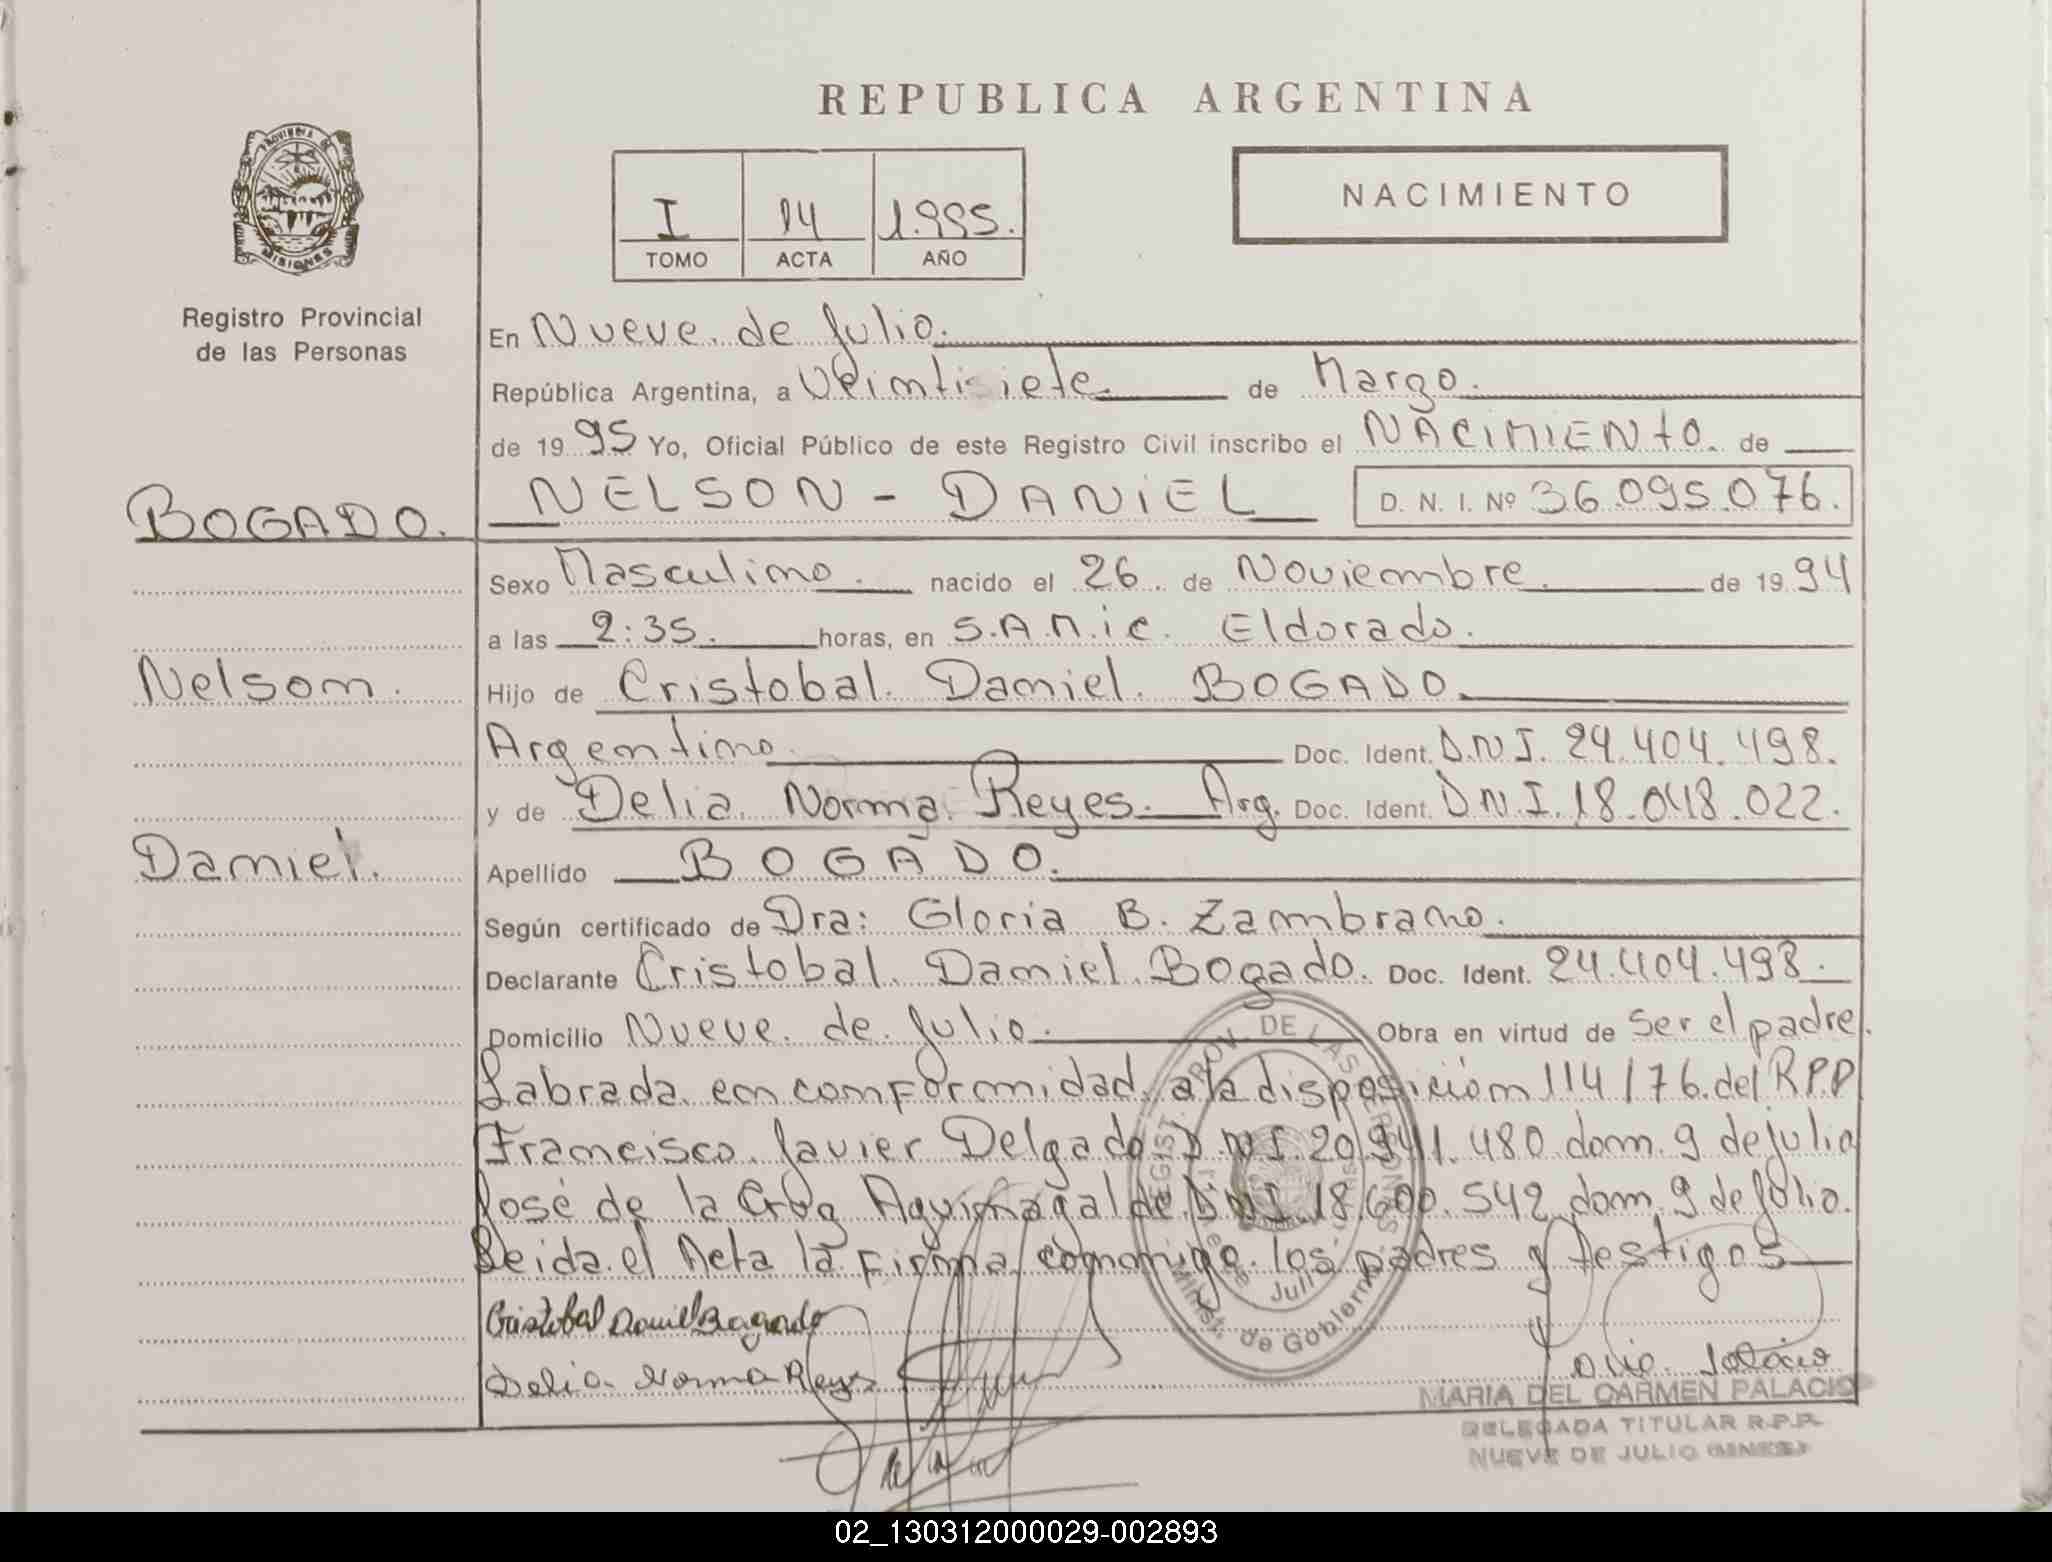 REPUBLICA ARGENTINA
PROVINCIA DE
MISIONES
Registro Provincial
de las Personas
I 14 1.995.
TOMO ACTA AÑO
NACIMIENTO
En Nueve de Julio.
República Argentina, a Veintisiete de Marzo.
de 1995 Yo, Oficial Público de este Registro Civil inscribo el NACIMIENTO de
BOGADO.
NELSON - DANIEL D. N. I. Nº 36.095.076.
Sexo Masculino. nacido el 26 de Noviembre. de 1994
a las 2:35. horas, en S.A.M.i.c. Eldorado.
Nelson.
Hijo de Cristobal Daniel BOGADO.
Argentino. Doc. Ident. D.N.I. 24.404.498.
y de Delia Norma Reyes. Arg. Doc. Ident. D.N.I. 18.048.022.
Daniel.
Apellido BOGADO.
Según certificado de Dra: Gloria B. Zambrano.
Declarante Cristobal Daniel Bogado. Doc. Ident. 24.404.498.
Domicilio Nueve de Julio. Obra en virtud de ser el padre.
Labrada en conformidad a la disposición 114/76 del R.P.P
Francisco Javier Delgado D.N.I. 20.941.480 dom. 9 de julio
José de la Cruz Aguinagalde D.N.I. 18.600.542 dom. 9 de Julio.
Leida el Acta la Firma conmigo los padres y testigos
Cristobal Daniel Bogado
Delia Norma Reyes
REGIST. PROV. DE LAS PERSONAS
Nueve de Julio
Minist. de Gobierno
MARIA DEL CARMEN PALACIO
DELEGADA TITULAR R.P.P.
NUEVE DE JULIO (MNES)
02_130312000029-002893